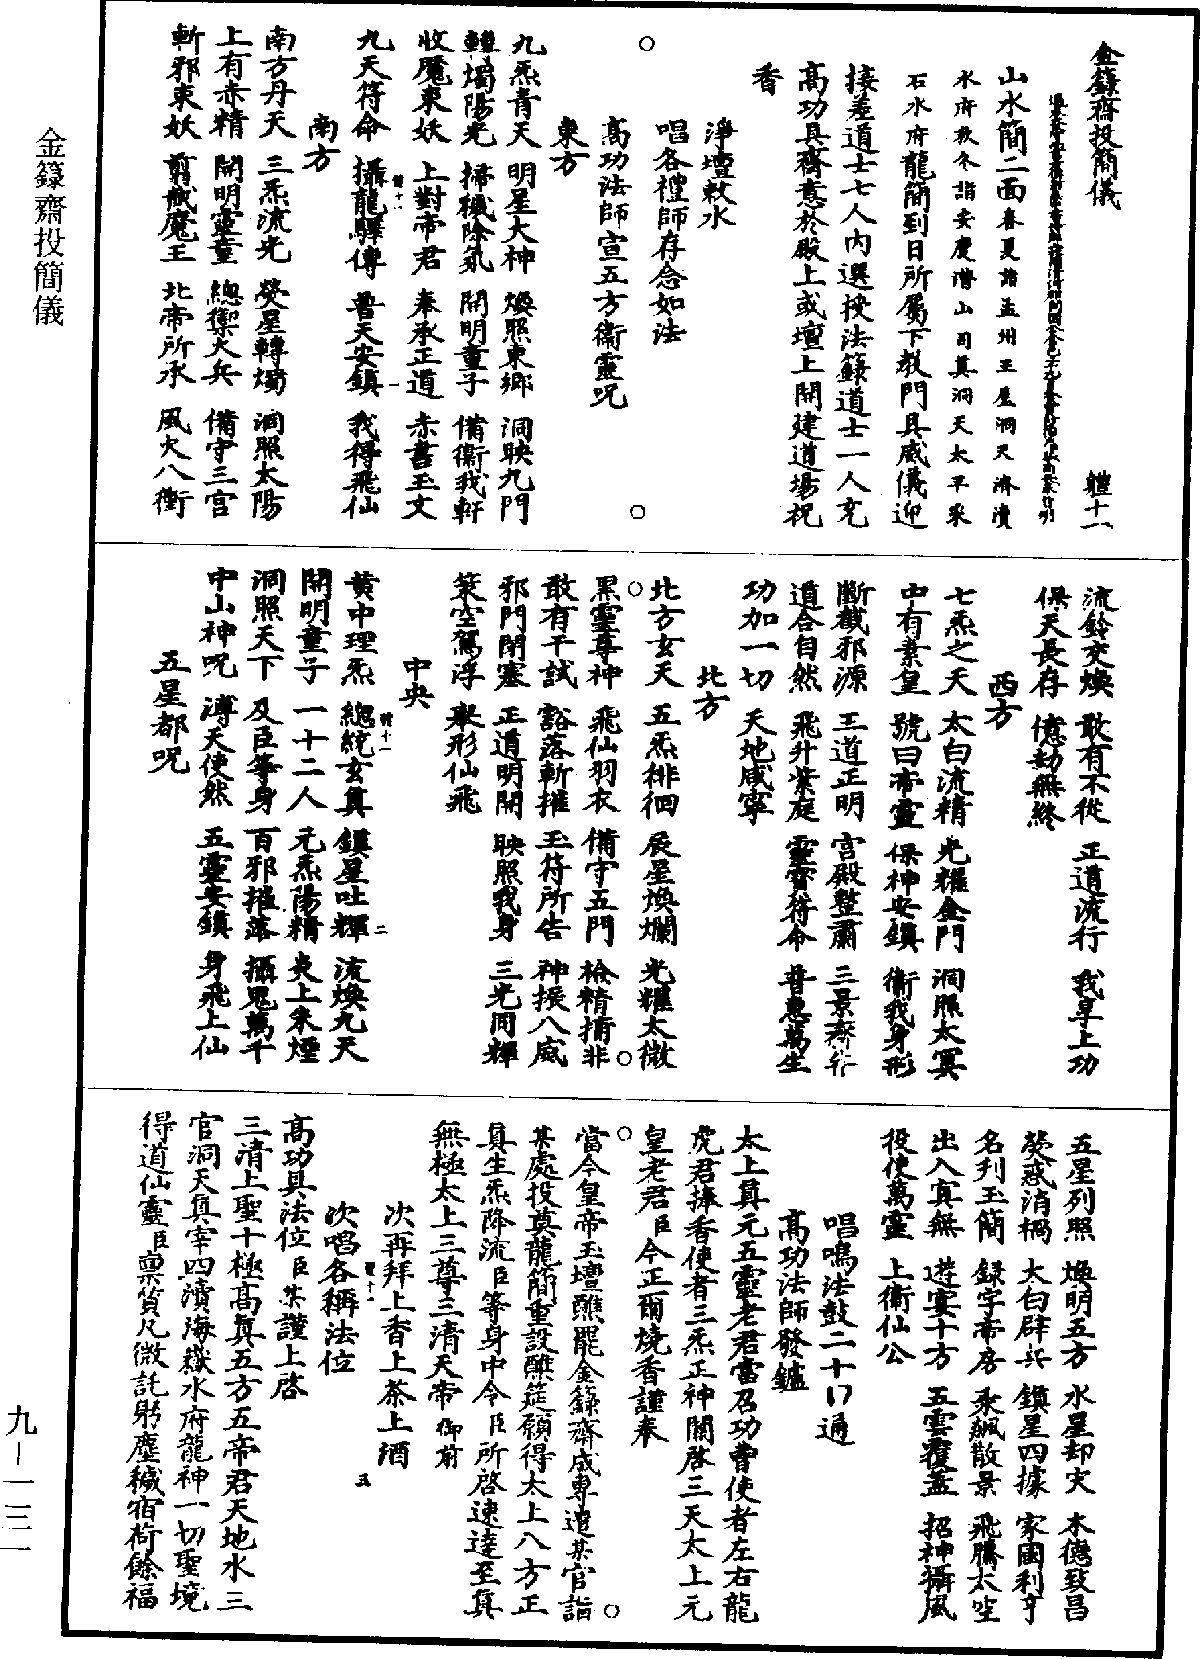 金籙齋投簡儀
體十一
山水簡二面春夏詣孟州王屋洞天濟瀆
水府秋冬詣安慶潛山司真洞天太平采
石水府龍簡到日所屬下教門具威儀迎
接差道士七人內選授法籙道士一人充
高功具齋意於殿上或壇上開建道場祝
香
淨壇敕水
唱各禮師存念如法
高功法師宣五方衛靈呪
東方
九炁青天 明星大神 煥照東鄉 洞映九門
轉燭陽光 掃穢除氛 開明童子 備衛我軒
收魔束妖 上對帝君 奉承正道 赤書玉文
九天符命 攝龍驛傳 普天安鎮 我得飛仙
南方
南方丹天 三炁流光 熒星轉燭 洞照太陽
上有赤精 開明靈童 總禦火兵 備守三宮
斬邪束妖 剪馘魔王 北帝所承 風火八衝
流鈴交煥 敢有不從 正道流行 我享上功
保天長存 億劫無終
西方
七炁之天 太白流精 光耀金門 洞照太冥
中有素皇 號曰帝靈 保神安鎮 衛我身形
斷截邪源 王道正明 宮殿整肅 三景齊并
道合自然 飛升紫庭 靈寶符命 普惠萬生
功加一切 天地咸寧
北方
北方玄天 五炁徘徊 辰星煥爛 光耀太微
黑靈尊神 飛仙羽衣 備守五門 檢精捕非
敢有干試 豁落斬摧 玉符所告 神振八威
邪門閉塞 正道明開 映照我身 三光同輝
策空駕浮 舉形仙飛
中央
黃中理炁 總統玄真 鎮星吐輝 流煥九天
開明童子 一十二人 元炁陽精 炎上朱煙
洞照天下 及臣等身 百邪摧落 攝鬼萬千
中山神呪 溥天使然 五靈安鎮 身飛上仙
五星都呪
五星列照 煥明五方 水星却灾 木德致昌
熒惑消禍 太白辟兵 鎮星四據 家國利亨
名列玉簡 錄字帝房 乘飆散景 飛騰太空
出入冥無 遊宴十方 五雲覆蓋 招神攝風
役使萬靈 上衛仙公
唱鳴法鼓二十四通
高功法師發鑪
太上真元五靈老君當召功曹使者左右龍
虎君捧香使者三炁正神關啓三天太上元
皇老君臣今正爾燒香謹奉
當今皇帝玉壇醮罷金籙齋成專遣某官詣
某處投奠龍簡重設醮筵願得太上八方正
真生炁降流臣等身中令臣所啓速達至真
無極太上三尊三清天帝御前
次再拜上香上茶上酒
次唱各稱法位
高功具法位臣某謹上啓
三清上聖十極高真五方五帝君天地水三
官洞天真宰四瀆海嶽水府龍神一切聖境
得道仙靈臣禀質凡微託躬塵穢宿荷餘福
金籙齋投簡儀
九－一三一